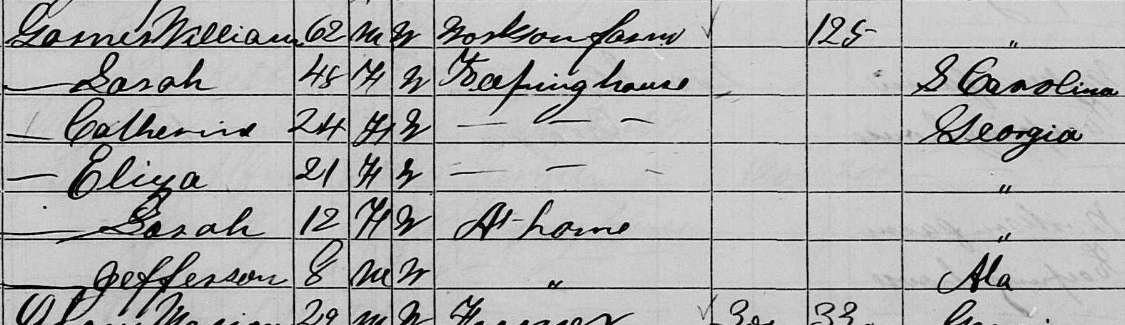 Garner William 62 M W Works on farm 125 "
— Sarah 48 F W Keeping house S Carolina
— Catherine 24 F W — — — Georgia
— Eliza 21 F W — — — "
— Sarah 12 F W At home "
— Jefferson 8 M W " Ala
29 M W Farmer